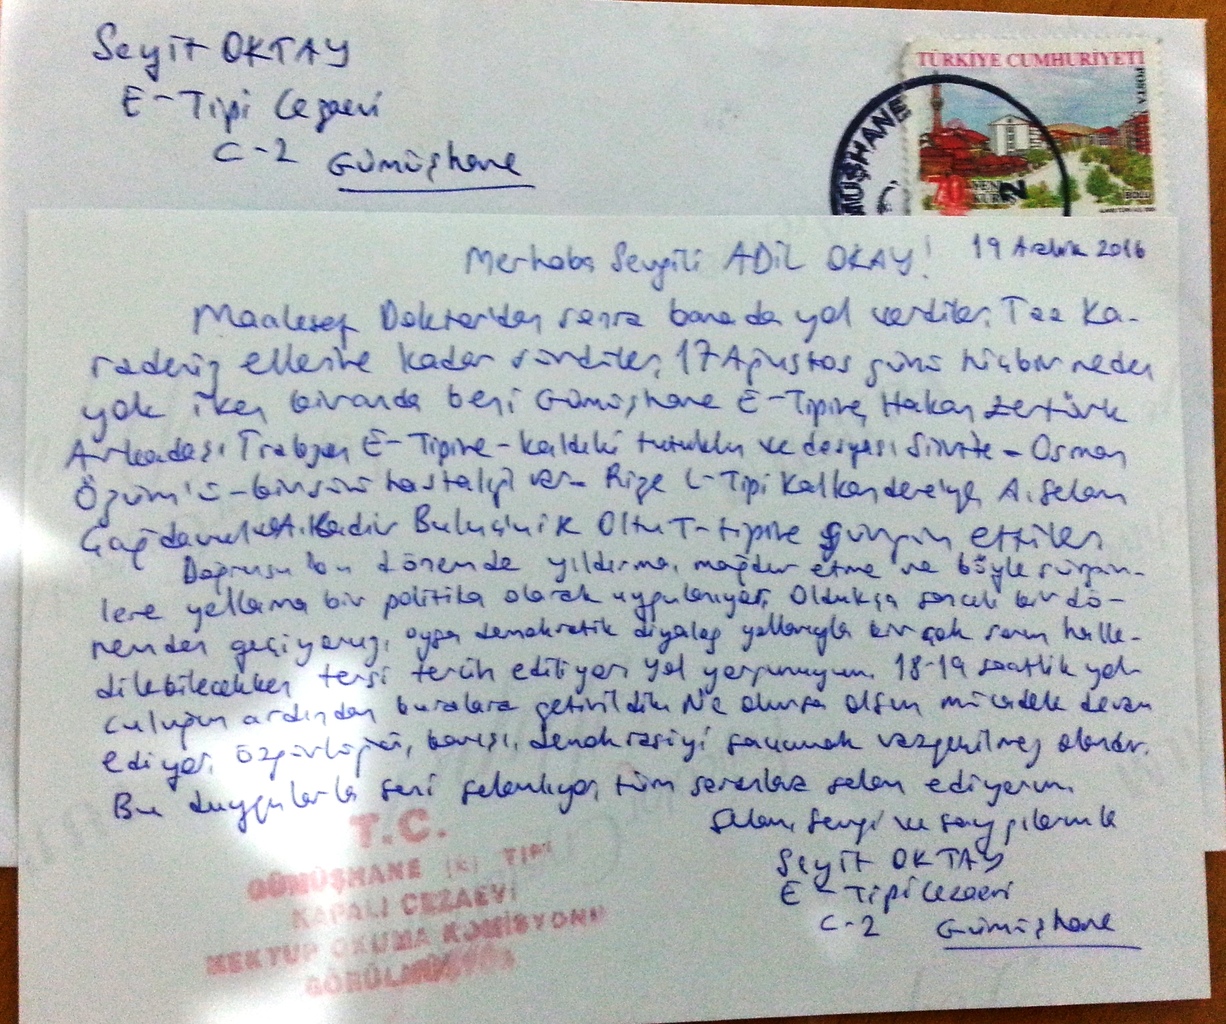 Seyit OKTAY
E-Tipi Cezaevi
C-2 Gümüşhane
TÜRKİYE CUMHURİYETİ
POSTA
BOLU
MÜŞHANE
70 YENİ KURUŞ
Merhaba Sevgili ADİL OKAY! 19 Aralık 2016
Maalesef Doktor'dan sonra bana da yol verdiler. Taa Ka-
radeniz ellerine kadar sürdüler. 17 Ağustos günü hiçbir neden
yok iken bir anda beni Gümüşhane E-Tipine, Hakan
Arkadaşı Trabzon E-Tipine - kaldıki tutuklu ve dosyası Siirtte - Osman
Özgür'ü - bir sürü hastalığı var - Rize L-Tipi Kalkandere'ye, A. Selam
A. Kadir Oltu T-tipine sürgün ettiler
Doğrusu bu dönemde yıldırma, mağdur etme ve böyle sürgün-
lere yollama bir politika olarak uygulanıyor. Oldukça sancılı bir dö-
nemden geçiyoruz, oysa demokratik diyalog yollarıyla bir çok sorun halle-
dilebilecekken tersi tercih ediliyor. Yol yorgunuyum. 18-19 saatlik yol-
culuğun ardından buralara getirildik. Ne olursa olsun mücadele devam
ediyor. Özgürlüğü, barışı, demokrasiyi savunmak vazgeçilmez olandır.
Bu duygularla seni selamlıyor, tüm sevenlere selam ediyorum.
Selam, sevgi ve saygılarımla
Seyit OKTAY
E-Tipi Cezaevi
C-2 Gümüşhane
T.C.
GÜMÜŞHANE (E) TİPİ
KAPALI CEZAEVİ
MEKTUP OKUMA KOMİSYONU
GÖRÜLMÜŞTÜR